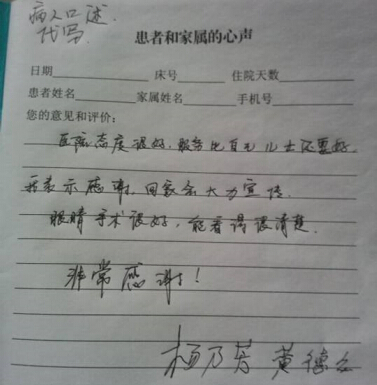 病人口述
代写.
患者和家属的心声
日期 床号 住院天数
患者姓名 家属姓名 手机号
您的意见和评价:
医院态度很好,服务比自己儿女还要好.
我表示感谢.回家会大力宣传.
眼睛手术很好,能看得很清楚.
非常感谢!
杨乃芳 黄德